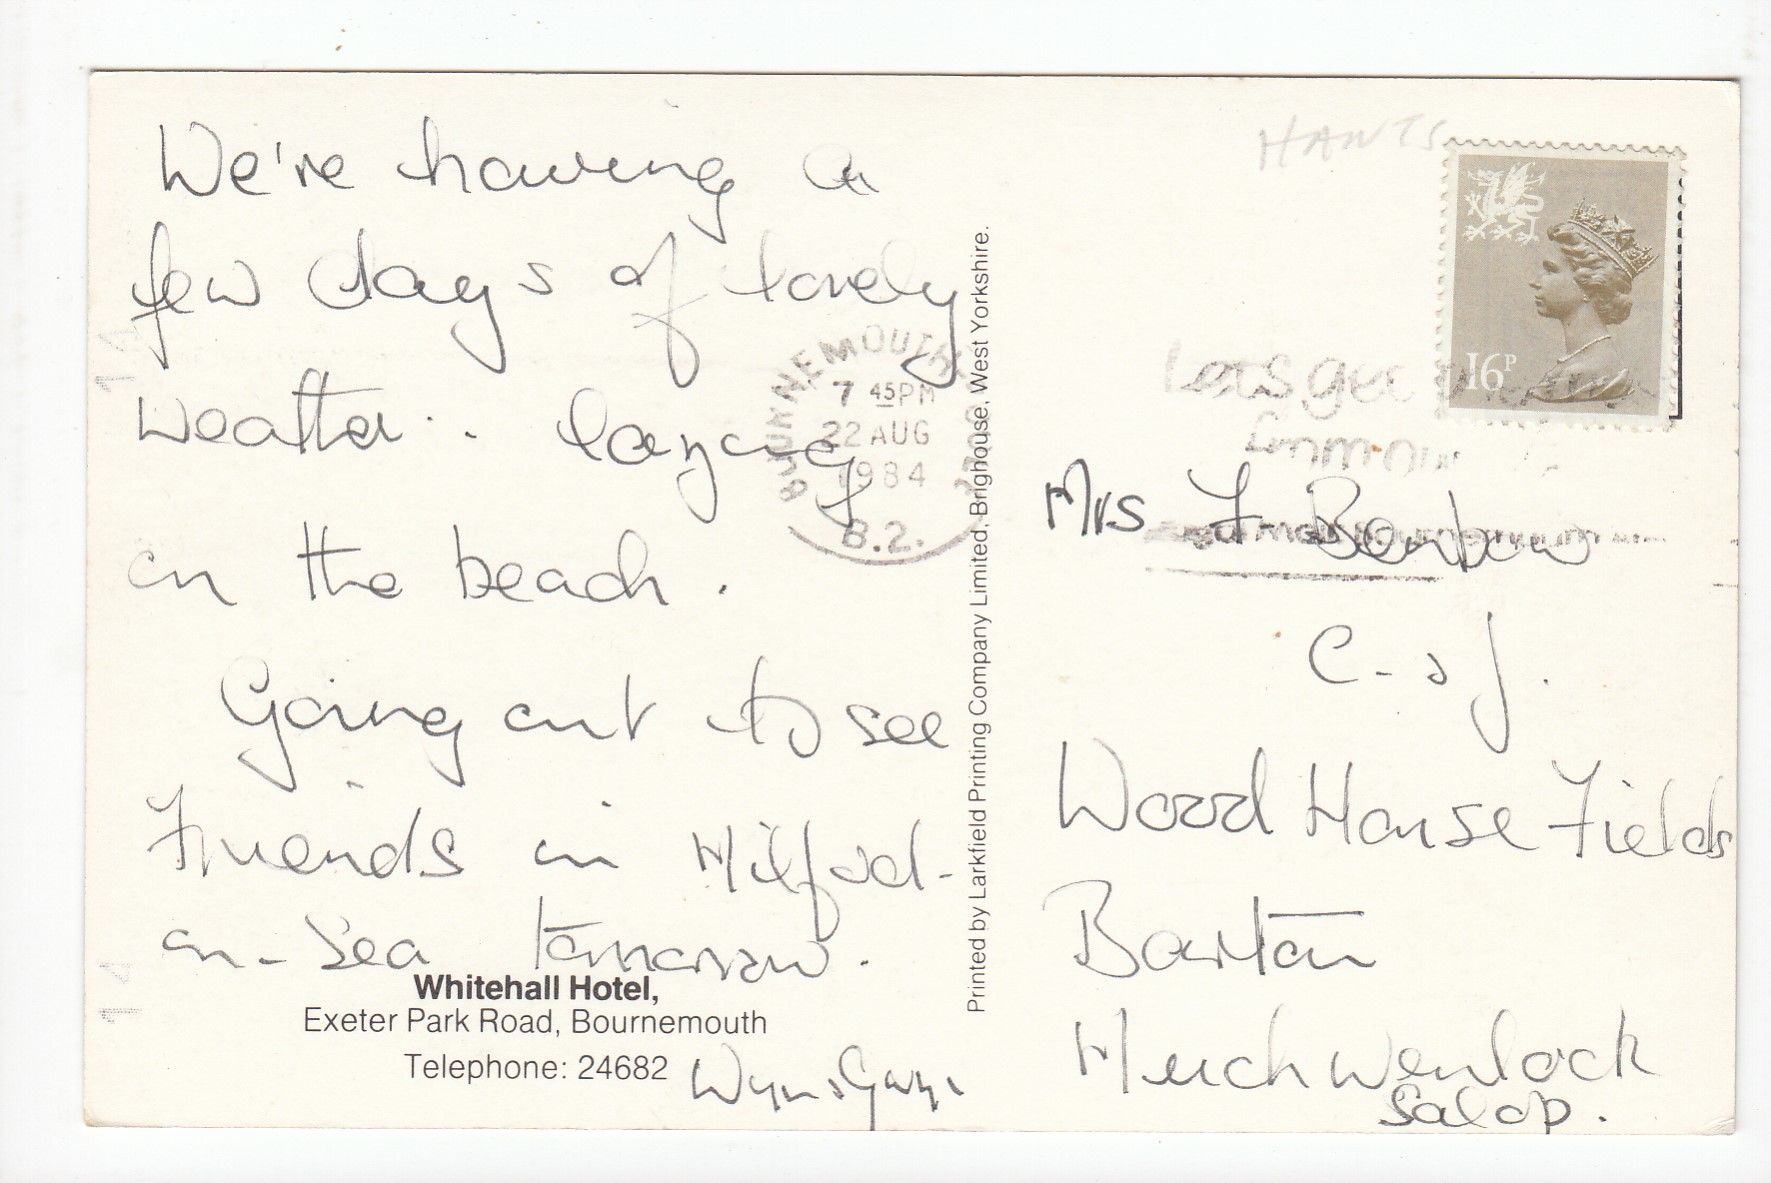 We're having a
few days of lovely
weather. lazying
on the beach.
Going out to see
Friends in Milford-
on-Sea tomorrow.
Whitehall Hotel,
Exeter Park Road, Bournemouth
Telephone: 24682
BOURNEMOUTH
7 45PM
22 AUG
1984
B.2.
Printed by Larkfield Printing Company Limited, Brighouse, West Yorkshire.
HANTS
16P
Let's get
Mrs F Benbow
C - s J.
Wood House Fields
Barton
Much Wenlock
Salop.